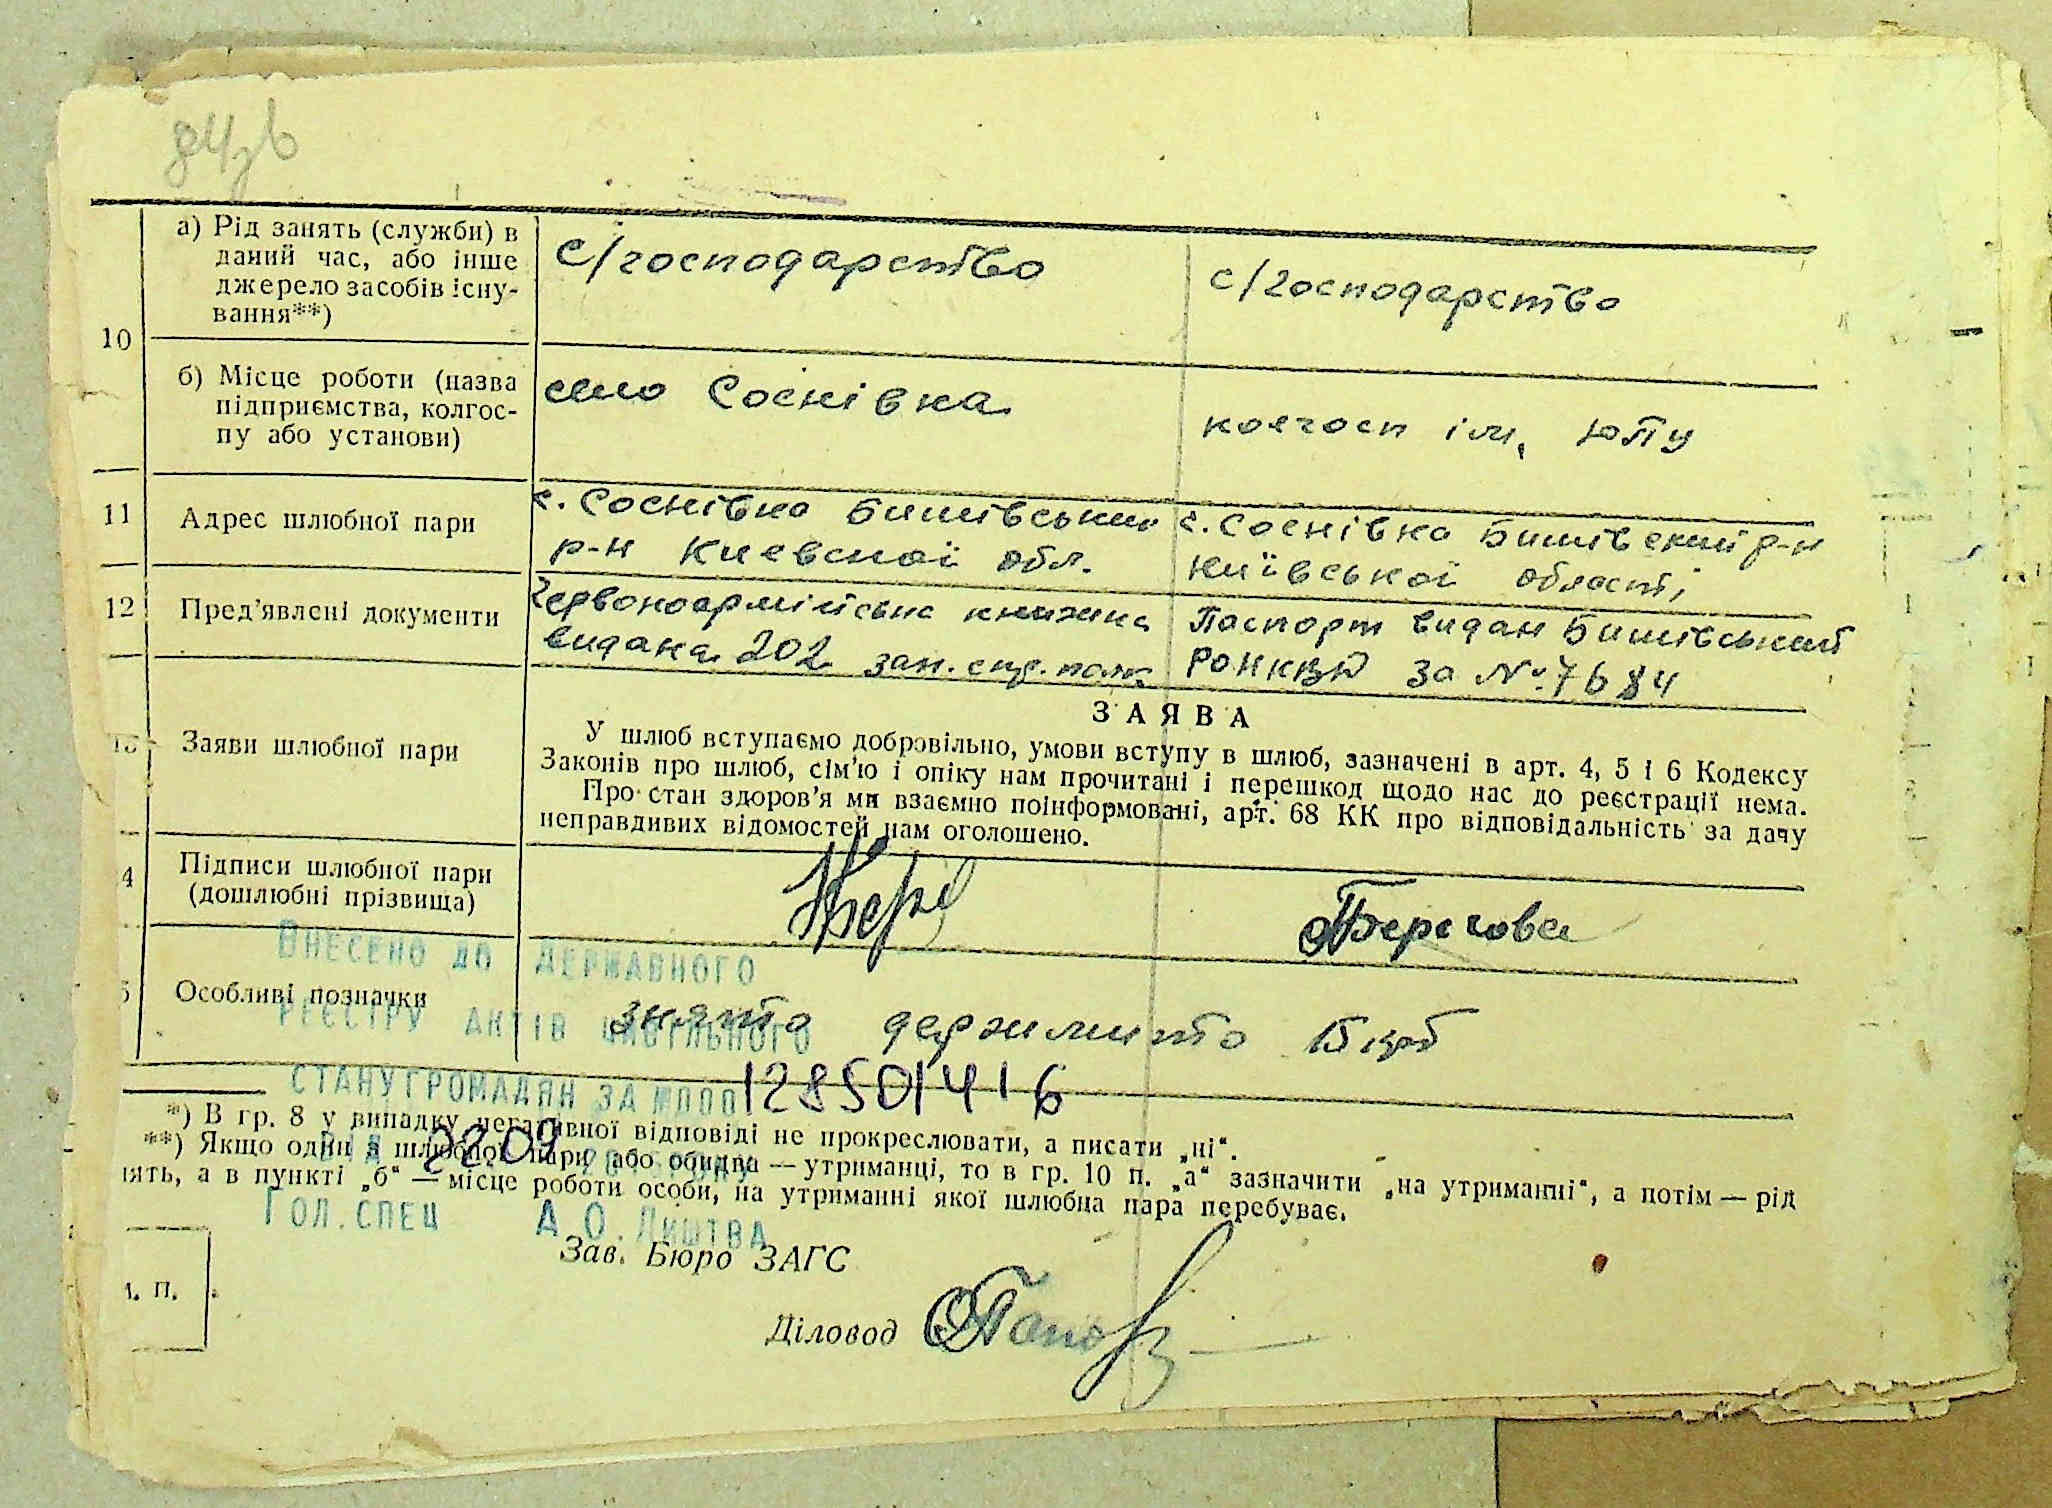 а) Рід занять (служби) в
даний час, або інше
джерело засобів існу-
вання**)
с/господарство
с/господарство
10
б) Місце роботи (назва
підприємства, колгос-
пу або установи)
село Соснівка
колгосп ім.
11
Адрес шлюбної пари
с. Соснівка Бишівський
р-н Киевської обл.
с. Соснівка Бишівский р-н
Київської області
12
Пред'явлені документи
Червоноармійська книжка
видана 202 зап. стр. полк
Паспорт видан Бишівський
РОНКВД за № 7684
13
Заяви шлюбної пари
ЗАЯВА
У шлюб вступаємо добровільно, умови вступу в шлюб, зазначені в арт. 4, 5 і 6 Кодексу
Законів про шлюб, сім'ю і опіку нам прочитані і перешкод щодо нас до реєстрації нема.
Про стан здоров'я ми взаємно поінформовані, арт. 68 КК про відповідальність за дачу
неправдивих відомостей нам оголошено.
4
Підписи шлюбної пари
(дошлюбні прізвища)
Берегова
5
Особливі позначки
знято держмито
ВНЕСЕНО ДО ДЕРЖАВНОГО
РЕЄСТРУ АКТІВ ЦИВІЛЬНОГО
СТАНУ ГРОМАДЯН ЗА №000128501416
ВІД 2209
ГОЛ.СПЕЦ А.О.ЛИШТВА
*) В гр. 8 у випадку негативної відповіді не прокреслювати, а писати „ні“.
**) Якщо один з шлюбної пари або обидва — утриманці, то в гр. 10 п. „а“ зазначити „на утриманні“, а потім — рід
нять, а в пункті „б“ — місце роботи особи, на утриманні якої шлюбна пара перебуває.
Зав. Бюро ЗАГС
П.
Діловод